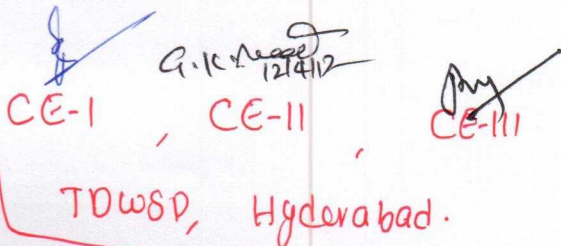 G.K.
12/4/12
CE-I , CE-II , CE-III
TDWSD, Hyderabad.